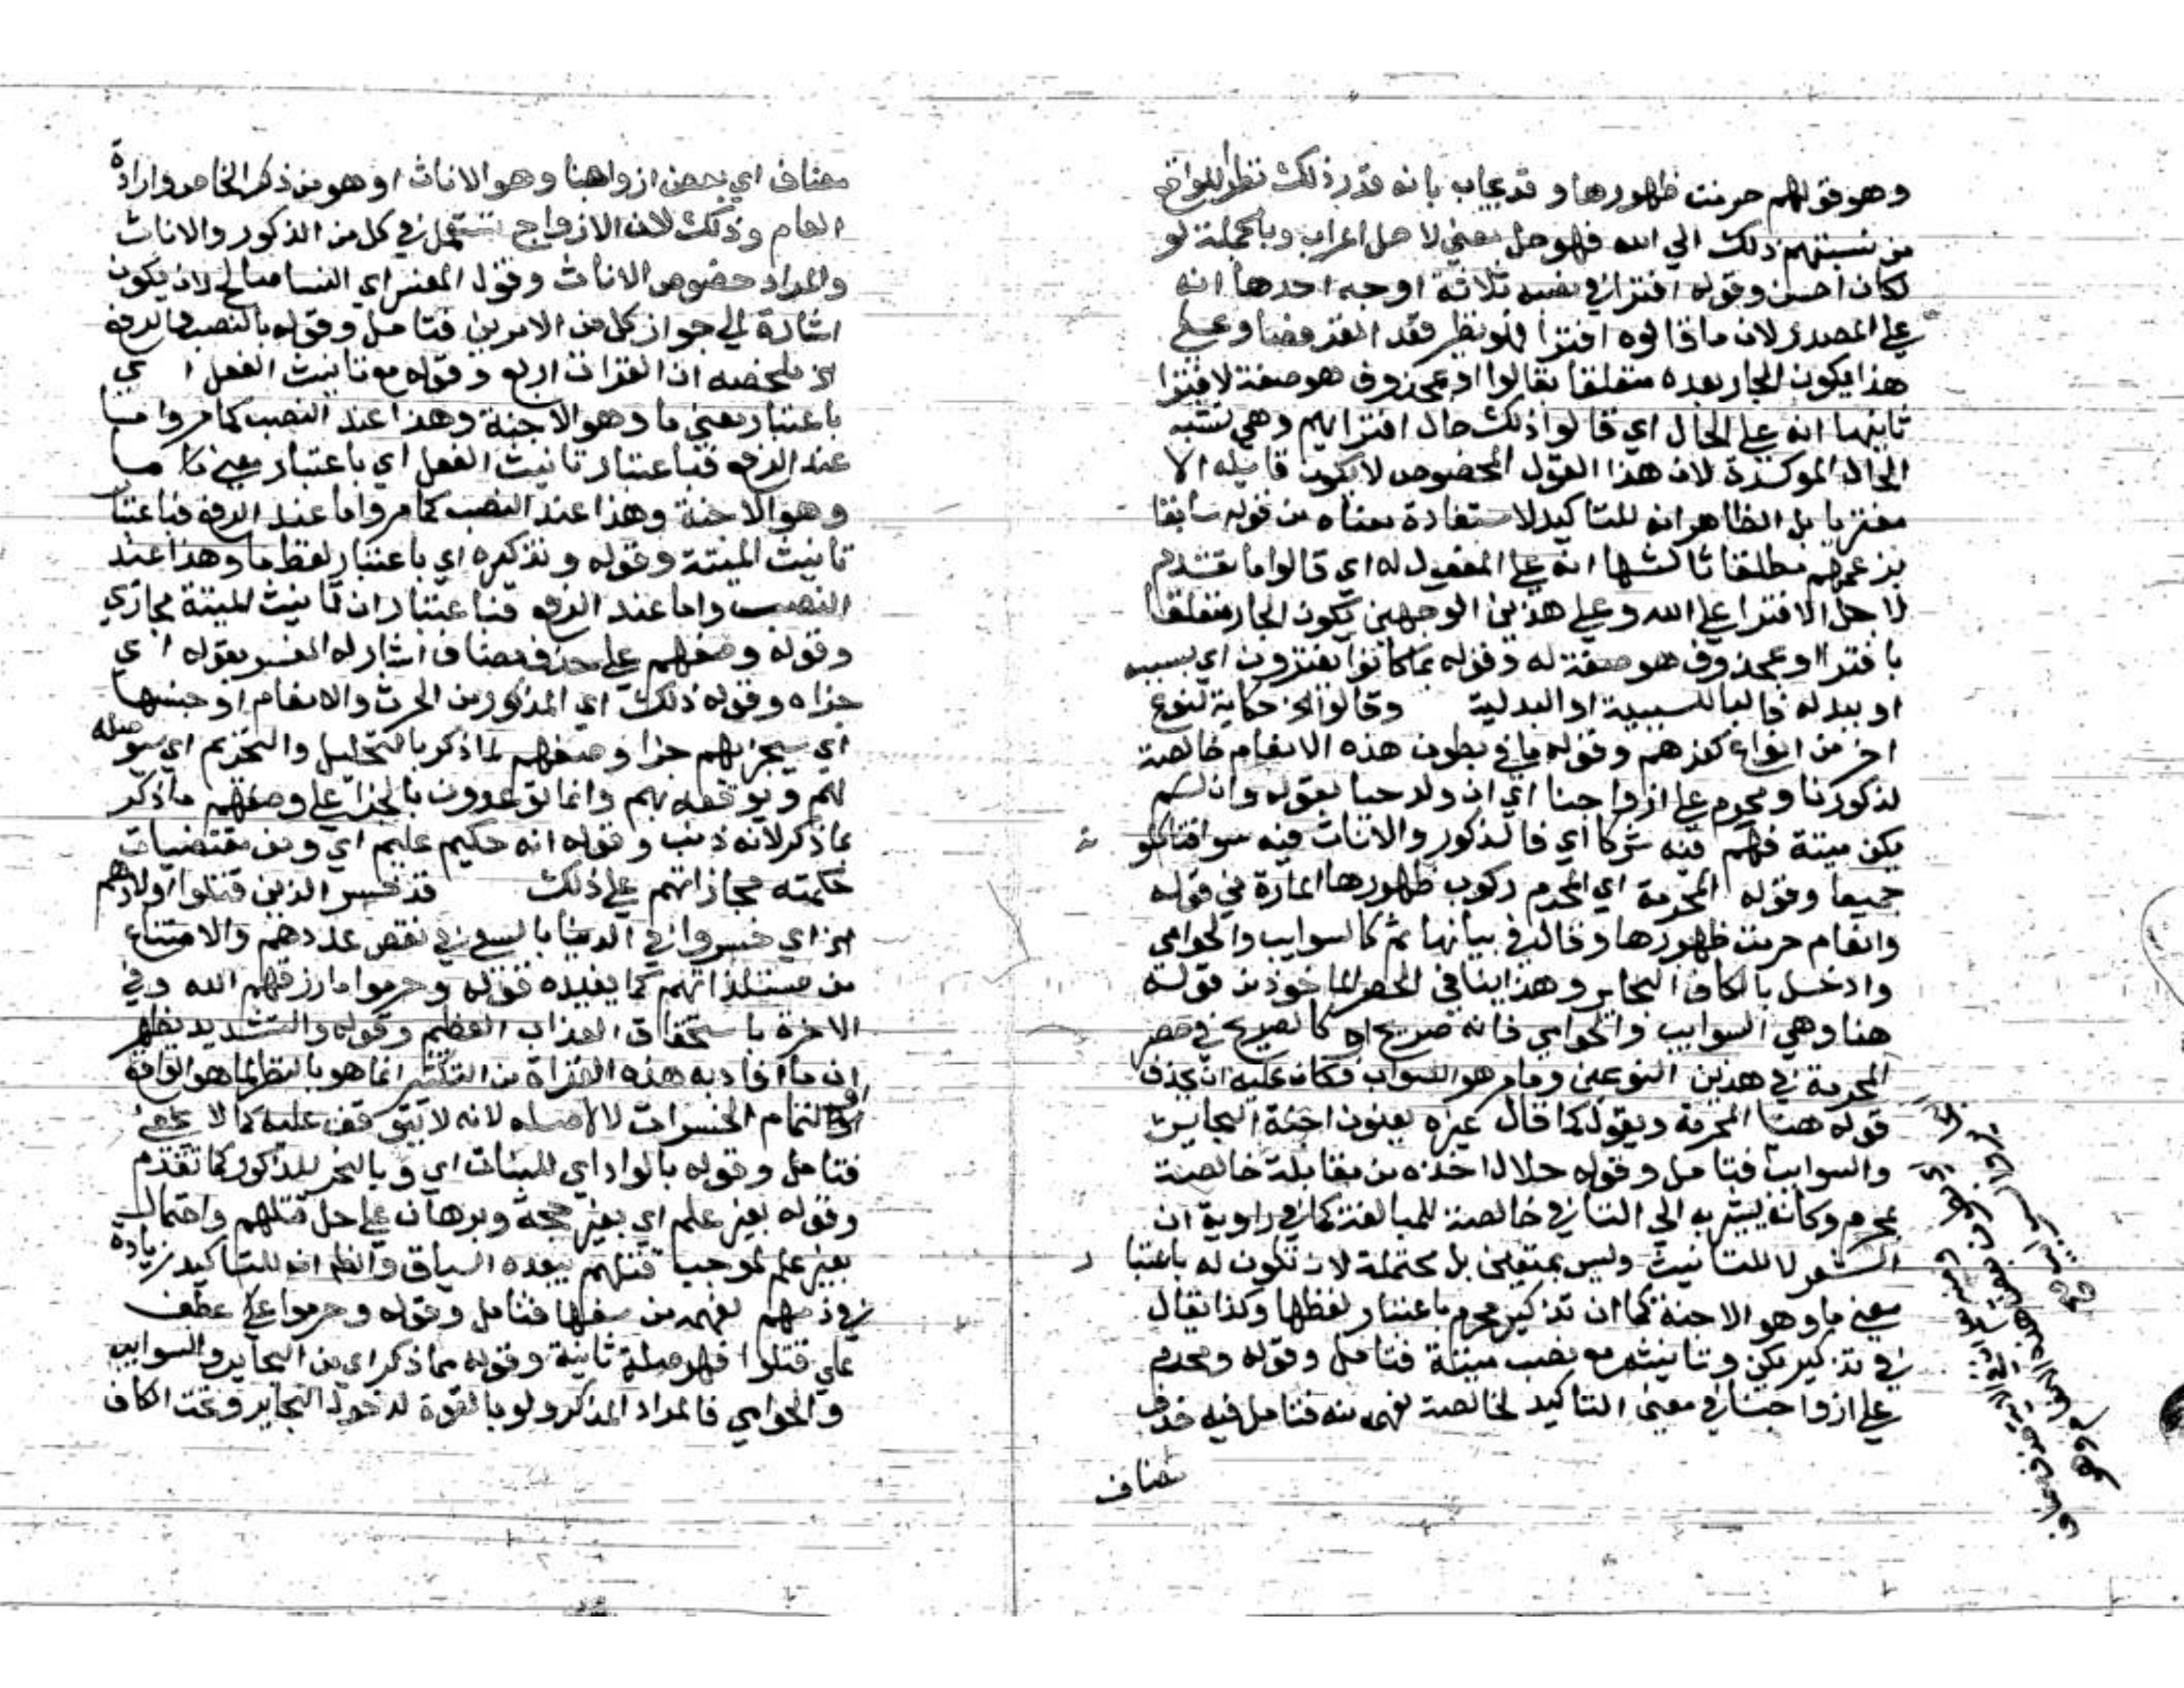 وهو قولهم حرمت ظهورها وقد يجاب بانه قدر ذلك نظرا للواقع
من نسبتهم ذلك الي الله فهو حل معني لا حل اعراب وبالجملة لو
لكان احسن وقوله افترا في نصبه ثلاثة اوجه احدها انه
علي المصدر لان ما قالوه افترا فهو نظير قعد القرفصا وعلي
هذا يكون الجار بعده متعلقا بقالوا او بمحذوف هو صفة لافترا
ثانيها انه علي الحال اي قالوا ذلك حال افترايهم وهي تشبه
الحال الموكدة لان هذا القول المخصوص لا يكون قايله الا
مفتريا بل الظاهر انه للتاكيد لاستفادة معناه من قوله سابقا
بزعمهم مطلقا ثالثها انه علي المفعول له اي قالوا ما تقدم
لاجل الافترا علي الله وعلي هذين الوجهين يكون الجار متعلقا
بافترا او بمحذوف هو صفة له وقوله بما كانوا يفترون اي بسببه
او بدله فالبا للسببية او البدلية وقالوا الخ حكاية لنوع
اخر من انواع كفرهم وقوله ما في بطون هذه الانعام خالصة
لذكورنا ومحرم علي ازواجنا اي ان ولد حيا بقوله وان لم
يكن ميتة فهم فيه شركا اي فالذكور والاناث فيه سوا فتاكلو نه
جميعا وقوله المحرمة اي المحرم ركوب ظهورها المارة في قوله
وانعام حرمت ظهورها وقال في بيانها ثم كالسوايب والحوامي
وادخل بالكاف البحاير وهذا ينافي الحصر الماخوذ من قوله
هنا وهي السوايب والحوامي فانه صريح او كالصريح في حصر
المحرمة في هذين النوعين وما مر هو الصواب فكان عليه ان يحذف
قوله هنا المحرمة ويقول كما قال غيره يعنون اجنة البحاير
والسوايب فتامل وقوله حلال اخذه من مقابلة خالصة
بمحرم وكانه يشير به الي التا في خالصة للمبالغة كما في راوية
الشعر لا للتانيث وليس بمتعين بل محتملة لان تكون له باعتبار
معني ما وهو الاجنة كما ان تذكير محرم باعتبار لفظها وكذا يقال
في تذكير يكن وتانيثه مع نصب ميتة فتامل وقوله ومحرم
علي ازواجنا في معني التاكيد لخالصة لفهمه منه فتامل فيه حذف
مضاف
مضاف اي بعض ازواجنا وهو الاناث او هو من ذكر الخاص وارادة
العام وذلك لان الازواج تستعمل في كل من الذكور والاناث
والمراد خصوص الاناث وقول المفسر اي النسا صالح لان يكون
اشارة الي جواز كل من الامرين فتامل وقوله بالنصب والرفع
الخ ملخصه ان القرات اربع وقوله مع تانيث الفعل اي
باعتبار معني ما وهو الاجنة وهذا عند النصب كما مر واما
عند الرفع فباعتبار تانيث الفعل اي باعتبار معني ما
وهو الاجنة وهذا عند النصب كما مر واما عند الرفع فباعتبار
تانيث الميتة وقوله وتذكيره اي باعتبار لفظ ما وهذا عند
النصب واما عند الرفع فباعتبار ان تانيث الميتة مجازي
وقوله وصفهم علي حذف مضاف اشار له المفسر بقوله اي
جزاه وقوله ذلك اي المذكور من الحرث والانعام او جنسها
اي سيجزيهم جزا وصفهم لما ذكر بالتحليل والتحريم اي سيوصله
لهم ويوقعه بهم وانما توعدون بالجزا علي وصفهم ما ذكر
بما ذكر لانه ذنب وقوله انه حكيم عليم اي ومن مقتضيات
حكمته مجازاتهم علي ذلك قد خسر الذين قتلوا اولادهم
الخ اي خسروا في الدنيا بالسعي في نقص عددهم والامتناع
من مستلذاتهم كما يفيده قوله وحرموا ما رزقهم الله وفي
الاخرة باستحقاق العذاب العظيم وقوله والتشديد يظهر
ان ما افاد به هذه القراة من التكثير انما هو بالنظر لما هو الواقع
لتمام الخسرات لا لاصله لانه لا يتوقف عليه كما لا يخفي
فتامل وقوله بالواد اي للبنات اي وبالنحر للذكور كما تقدم
وقوله بغير علم اي بغير حجة وبرهان علي حل قتلهم واحتمال
بغير علم لموجب قتلهم يبعده السياق والظاهر انه للتاكيد زيادة
في ذمهم لفهمه من سفها فتامل وقوله وحرموا علي عطف
علي قتلوا فهو صلة ثانية وقوله مما ذكر اي من البحاير والسوايب
والحوامي فالمراد المذكر ولو بالقوة لدخول البحاير تحت الكاف